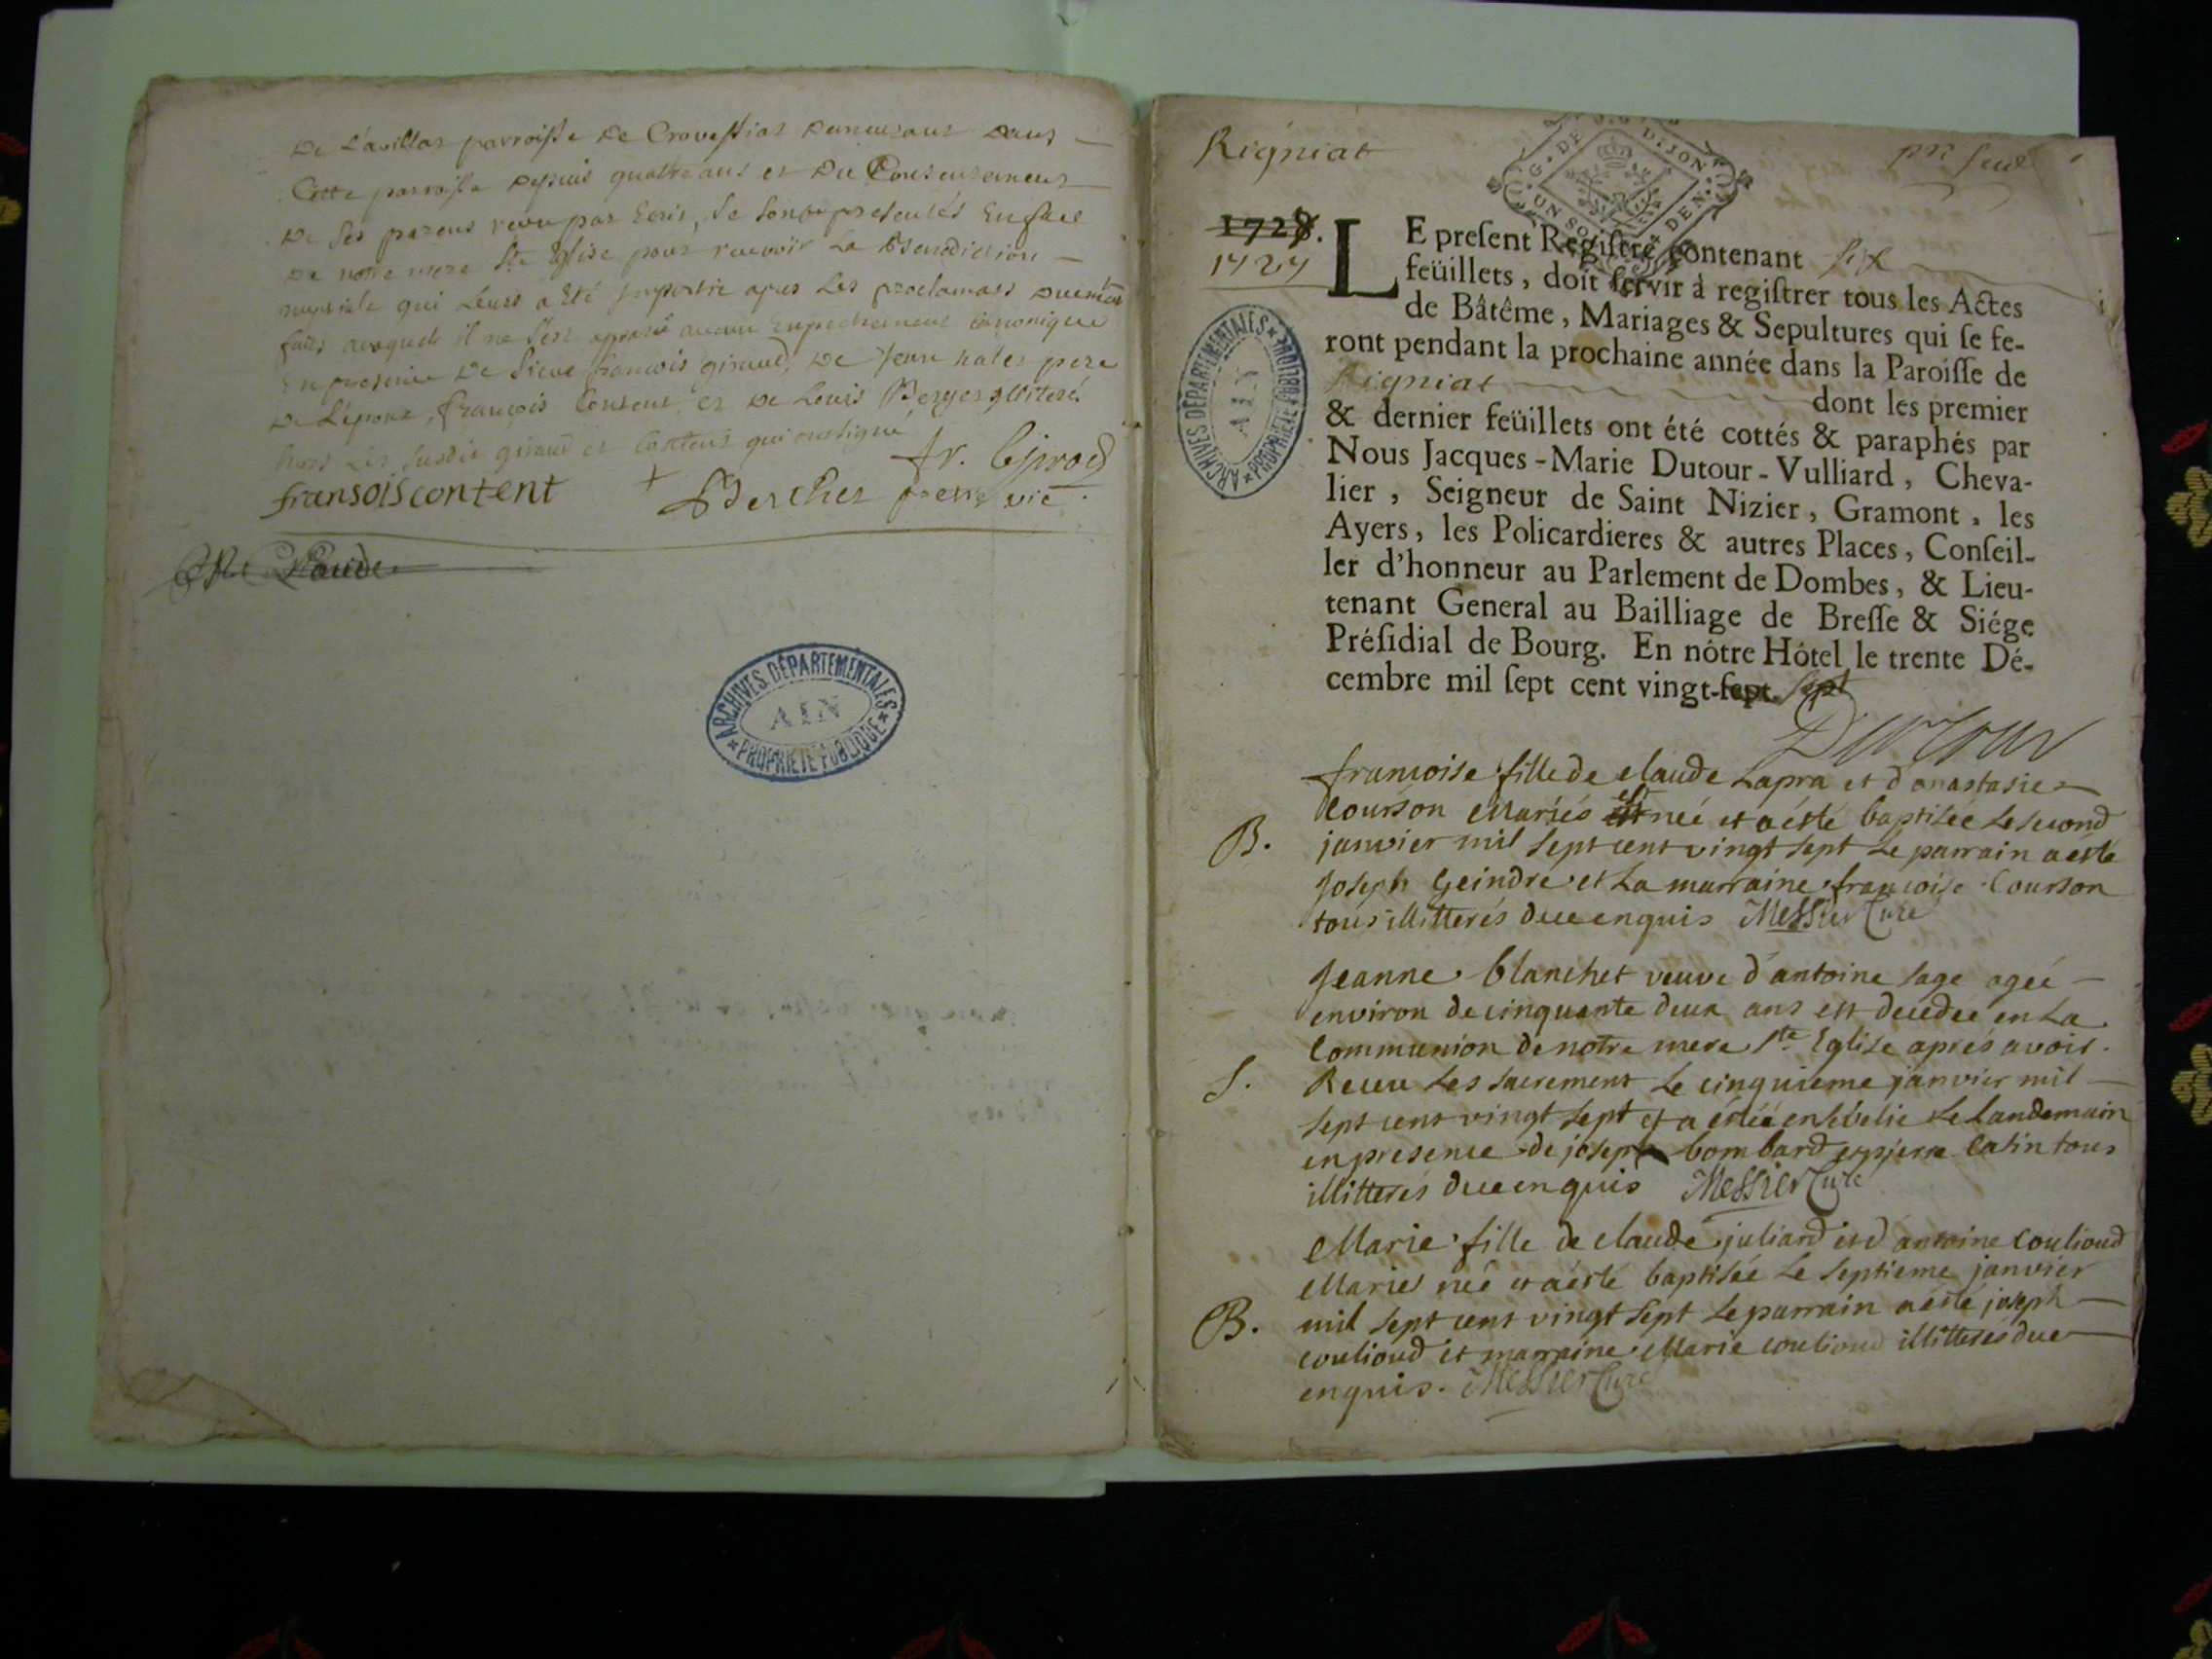 De Lavillas parroisse De Crovessias Demeurant Dans
Cette parroisse Depuis quattre ans et Du Consentement
De Ses parens receu par Ecris, Se sont presentés En face
De notre mere Ste Eglise pour recevoir La Benediction
nuptiale qui Leurs a Eté impartie apres Les proclamas Duement
faits ausquels il ne s'est apparu aucun Enpechement Canonique
En presence De Sieur francois giraud, De Jean pere
De Lépoux, françois Content, et De Louis Berger illiterés
hors Les susdis giraud et Content qui ont signé
fr. Girod
fransois content
+
Bercher pretre vic.
Claude
Rigniat
pr. feuil
G. DE DIJON
UN SOL DEN.
1728.
1727
LE present Registre contenant six
feüillets, doit servir à registrer tous les Actes
de Bâtême, Mariages & Sepultures qui se fe-
ront pendant la prochaine année dans la Paroisse de
Rigniat dont les premier
& dernier feüillets ont été cottés & paraphés par
Nous Jacques-Marie Dutour-Vulliard, Cheva-
lier, Seigneur de Saint Nizier, Gramont, les
Ayers, les Policardieres & autres Places, Conseil-
ler d'honneur au Parlement de Dombes, & Lieu-
tenant General au Bailliage de Bresse & Siége
Présidial de Bourg. En nôtre Hôtel le trente Dé-
cembre mil sept cent vingt-sept. sept
Dutour
francoise fille de claude Lapra et d'anastasie
Courson Mariés est neé et a ésté baptiseé Le second
B. janvier mil sept cent vingt sept Le parrain a esté
Joseph Geindre et La marraine francoise Courson
tous illitterés due enquis Messier Curé
Jeanne blanchet veuve d'antoine sage ageé
environ de cinquante deux ans est decedeé en La
Communion de notre mere Ste Eglise apres avoir
S. Receu Les sacrement Le cinquieme janvier mil
sept cent vingt sept et a esteé ensevelie Le Landemain
en presence de joseph bombard et pierre Catin tous
illitterés due enquis Messier Curé
Marie fille de claude juliard et d'antoine Coulioud
Mariés neé et a ésté baptiseé Le septieme janvier
B. mil sept cent vingt sept Le parrain a esté joseph
coulioud et marraine Marie coulioud illitterés due
enquis. Messier Curé
ARCHIVES DÉPARTEMENTALES
AIN
PROPRIETE PUBLIQUE
ARCHIVES DÉPARTEMENTALES
AIN
PROPRIETE PUBLIQUE